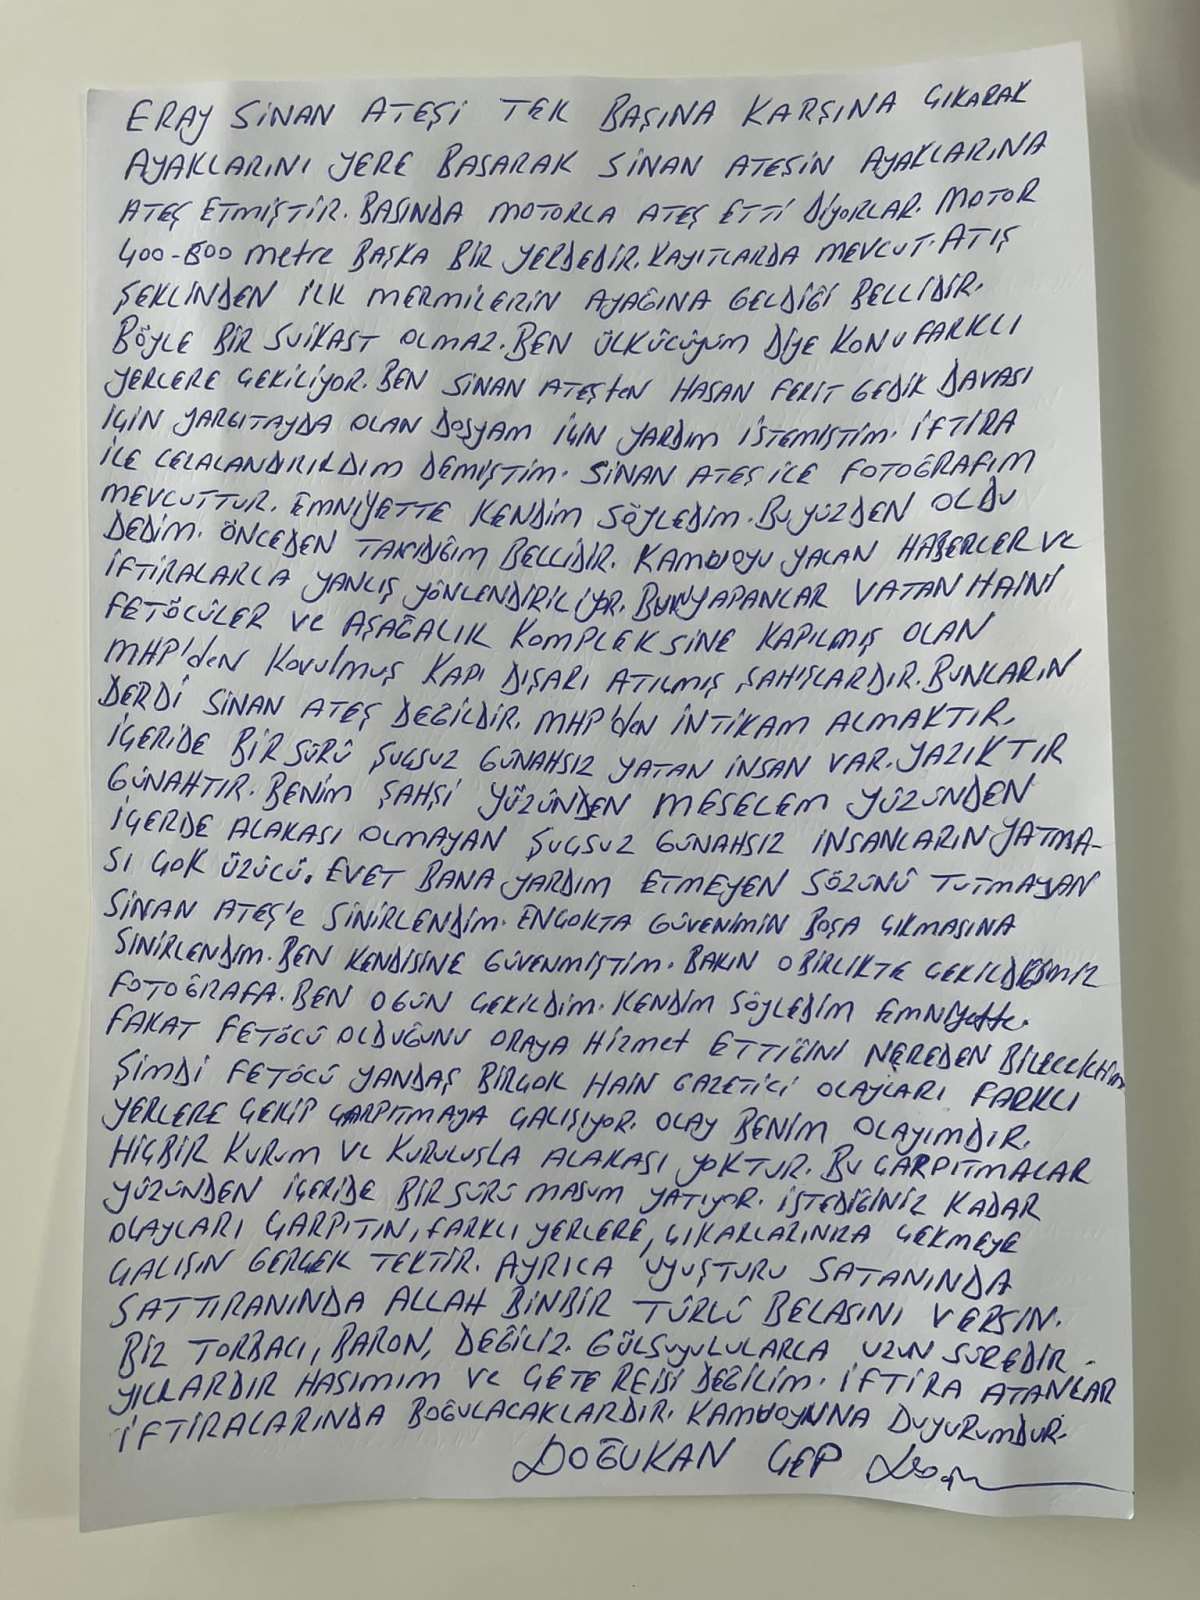 ERAY SİNAN ATEŞİ TEK BAŞINA KARŞINA ÇIKARAK
AYAKLARINI YERE BASARAK SİNAN ATEŞİN AYAKLARINA
ATEŞ ETMİŞTİR. BASINDA MOTORLA ATEŞ ETTİ DİYORLAR. MOTOR
400-500 metre BAŞKA BİR YERDEDİR. KAYITLARDA MEVCUT. ATIŞ
ŞEKLİNDEN İLK MERMİLERİN AYAĞINA GELDİĞİ BELLİDİR.
BÖYLE BİR SUİKAST OLMAZ. BEN ÜLKÜCÜYÜM DİYE KONU FARKLI
YERLERE ÇEKİLİYOR. BEN SİNAN ATEŞten HASAN FERİT GEDİK DAVASI
İÇİN YARGITAYDA OLAN DOSYAM İÇİN YARDIM İSTEMİŞTİM. İFTİRA
İLE CEZALANDIRILDIM DEMİŞTİM. SİNAN ATEŞ İLE FOTOĞRAFIM
MEVCUTTUR. EMNİYETTE KENDİM SÖYLEDİM. BU YÜZDEN OLDU
DEDİM. ÖNCEDEN TANIDIĞIM BELLİDİR. KAMUOYU YALAN HABERLER VE
İFTİRALARLA YANLIŞ YÖNLENDİRİLİYOR. BUNU YAPANLAR VATAN HAİNİ
FETÖCÜLER VE AŞAĞALIK KOMPLEKSİNE KAPILMIŞ OLAN
MHP'den KOVULMUŞ KAPI DIŞARI ATILMIŞ ŞAHIŞLARDIR. BUNLARIN
DERDİ SİNAN ATEŞ DEĞİLDİR. MHP'den İNTİKAM ALMAKTIR.
İÇERİDE BİR SÜRÜ SUÇSUZ GÜNAHSIZ YATAN İNSAN VAR. YAZIKTIR
GÜNAHTIR. BENİM ŞAHSİ YÜZÜNDEN MESELEM YÜZÜNDEN
İÇERDE ALAKASI OLMAYAN SUÇSUZ GÜNAHSIZ İNSANLARIN YATMA-
SI ÇOK ÜZÜCÜ. EVET BANA YARDIM ETMEYEN SÖZÜNÜ TUTMAYAN
SİNAN ATEŞ'e SİNİRLENDİM. ENÇOKTA GÜVENİMİN BOŞA ÇIKMASINA
SİNİRLENDİM. BEN KENDİSİNE GÜVENMİŞTİM. BAKIN O BİRLİKTE ÇEKİLDİĞİMİZ
FOTOĞRAFA. BEN O GÜN ÇEKİLDİM. KENDİM SÖYLEDİM EMNİyette.
FAKAT FETÖCÜ OLDUĞUNU ORAYA HİZMET ETTİĞİNİ NEREDEN BİLECEKTİM
ŞİMDİ FETÖCÜ YANDAŞ BİRÇOK HAİN GAZETİCİ OLAYLARI FARKLI
YERLERE ÇEKİP ÇARPITMAYA ÇALIŞIYOR. OLAY BENİM OLAYIMDIR.
HİÇBİR KURUM VE KURULUŞLA ALAKASI YOKTUR. BU ÇARPITMALAR
YÜZÜNDEN İÇERİDE BİR SÜRÜ MASUM YATIYOR. İSTEDİĞİNİZ KADAR
OLAYLARI ÇARPITIN, FARKLI YERLERE, ÇIKARLARINIZA ÇEKMEYE
ÇALIŞIN GERÇEK TEKTİR. AYRICA UYUŞTURU SATANINDA
SATTIRANINDA ALLAH BİNBİR TÜRLÜ BELASINI VERSİN.
BİZ TORBACI, BARON, DEĞİLİZ. GÜLSUYULULARLA UZUN SÜREDİR
YILLARDIR HASIMIM VE ÇETE REİSİ DEĞİLİM. İFTİRA ATANLAR
İFTİRALARINDA BOĞULACAKLARDIR. KAMUOYUNA DUYURUMDUR.
DOĞUKAN ÇEP